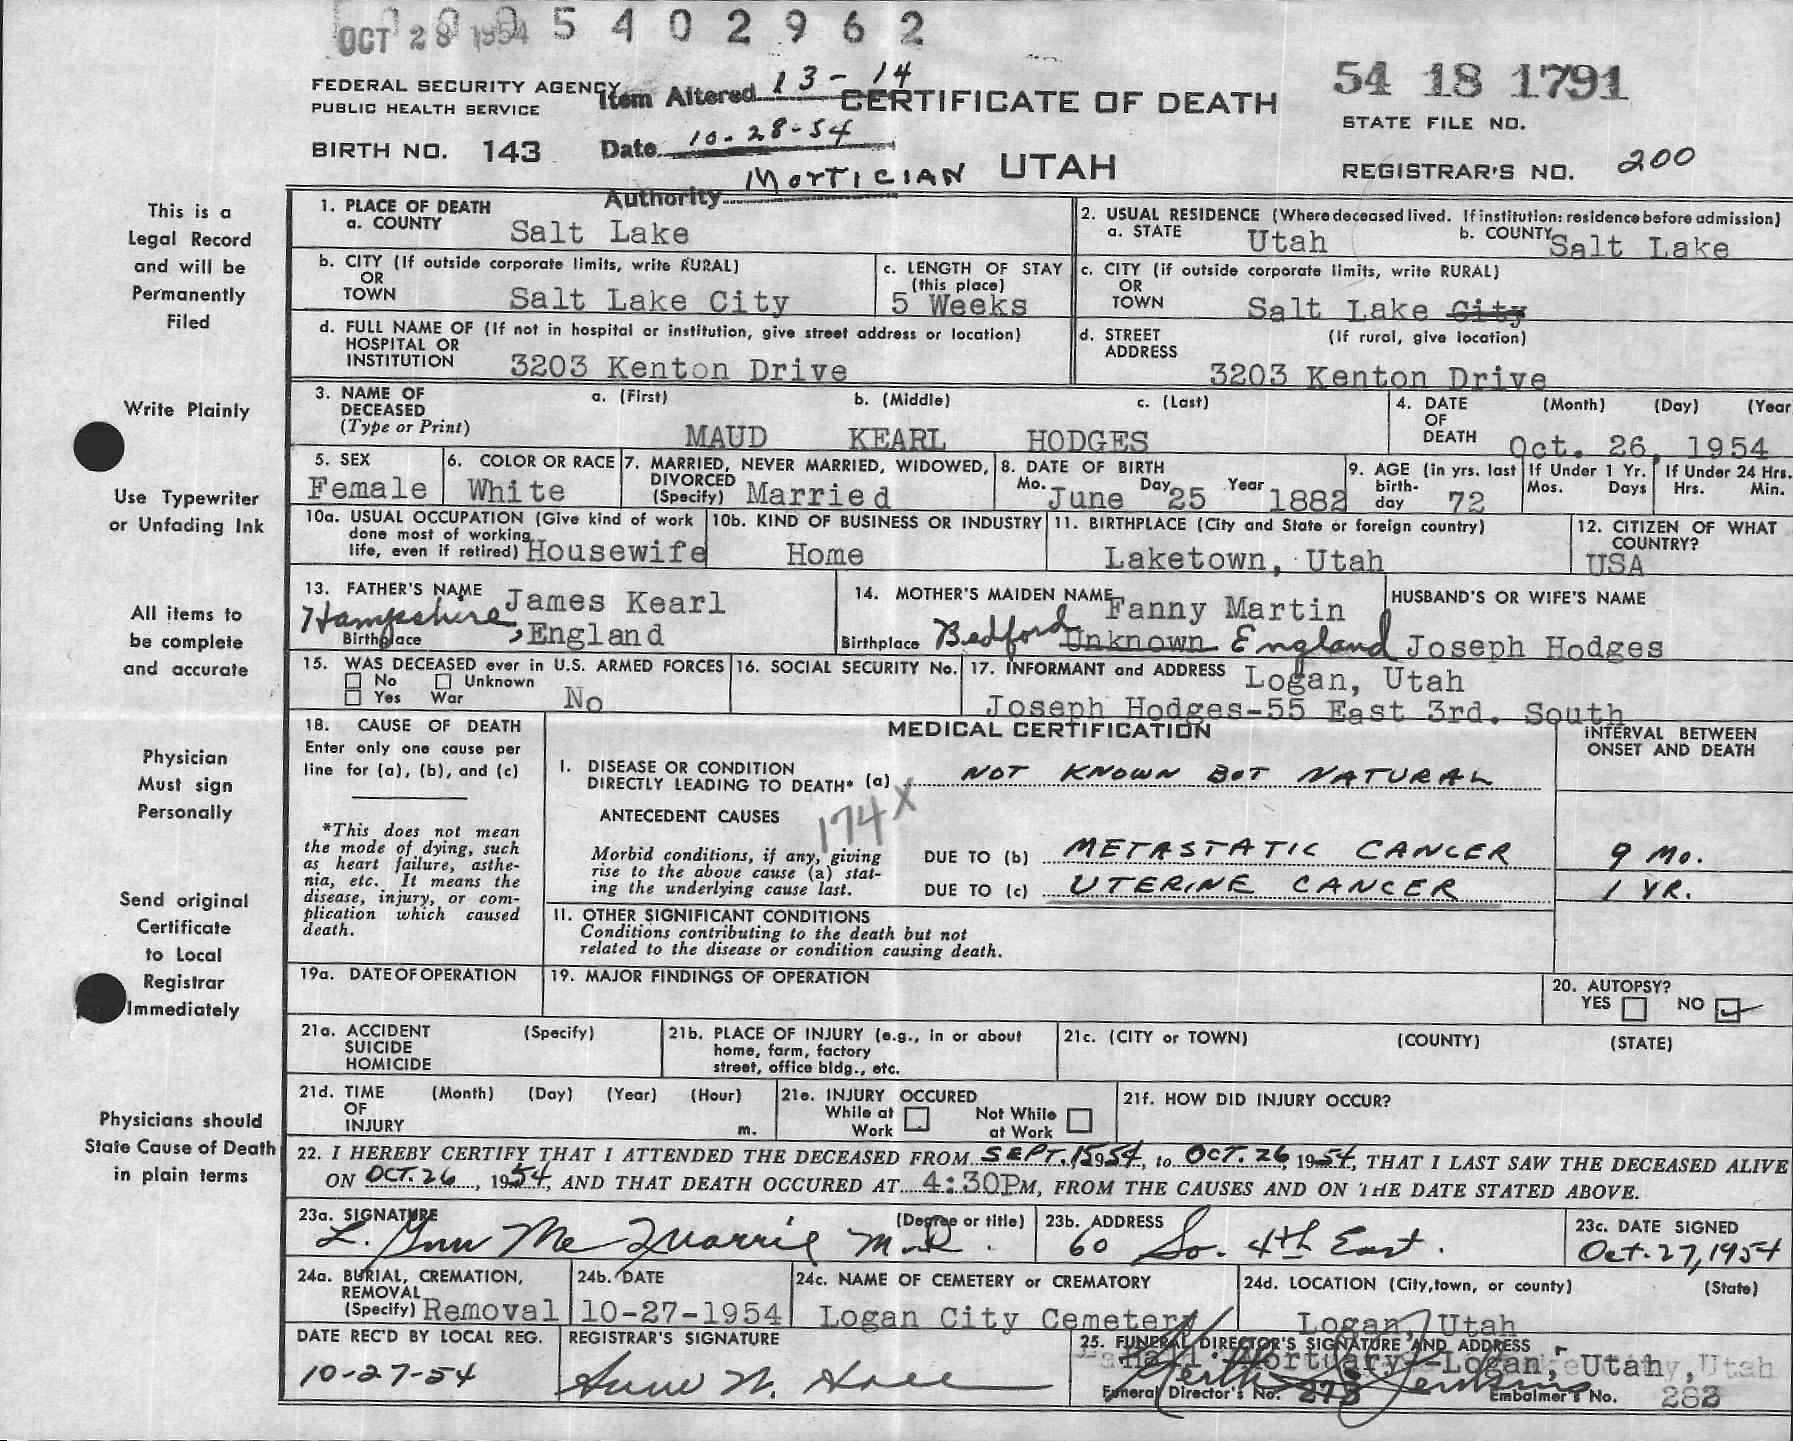 OCT 28 1954 5 4 0 2 9 6 2
FEDERAL SECURITY AGENCY
PUBLIC HEALTH SERVICE
BIRTH NO. 143
Item Altered 13-14
Date 10-28-54
Authority MORTICIAN
CERTIFICATE OF DEATH
UTAH
54 18 1791
STATE FILE NO.
REGISTRAR'S NO. 200
This is a
Legal Record
and will be
Permanently
Filed
Write Plainly
Use Typewriter
or Unfading Ink
All items to
be complete
and accurate
Physician
Must sign
Personally
Send original
Certificate
to Local
Registrar
Immediately
Physicians should
State Cause of Death
in plain terms
1. PLACE OF DEATH
a. COUNTY Salt Lake
2. USUAL RESIDENCE (Where deceased lived. If institution: residence before admission)
a. STATE Utah b. COUNTY Salt Lake
b. CITY (If outside corporate limits, write RURAL)
OR
TOWN Salt Lake City
c. LENGTH OF STAY
(this place)
5 Weeks
c. CITY (if outside corporate limits, write RURAL)
OR
TOWN Salt Lake City
d. FULL NAME OF (If not in hospital or institution, give street address or location)
HOSPITAL OR
INSTITUTION 3203 Kenton Drive
d. STREET (If rural, give location)
ADDRESS
3203 Kenton Drive
3. NAME OF a. (First) b. (Middle) c. (Last)
DECEASED
(Type or Print)
MAUD KEARL HODGES
4. DATE (Month) (Day) (Year
OF
DEATH Oct. 26, 1954
5. SEX
Female
6. COLOR OR RACE
White
7. MARRIED, NEVER MARRIED, WIDOWED,
DIVORCED
(Specify) Married
8. DATE OF BIRTH
Mo. June Day 25 Year 1882
9. AGE (in yrs. last
birth-
day 72
If Under 1 Yr.
Mos. Days
If Under 24 Hrs.
Hrs. Min.
10a. USUAL OCCUPATION (Give kind of work
done most of working
life, even if retired) Housewife
10b. KIND OF BUSINESS OR INDUSTRY
Home
11. BIRTHPLACE (City and State or foreign country)
Laketown, Utah
12. CITIZEN OF WHAT
COUNTRY?
USA
13. FATHER'S NAME James Kearl
Hampshire, England
Birthplace
14. MOTHER'S MAIDEN NAME Fanny Martin
Birthplace Bedford Unknown England
HUSBAND'S OR WIFE'S NAME
Joseph Hodges
15. WAS DECEASED ever in U.S. ARMED FORCES
No Unknown
Yes War No
16. SOCIAL SECURITY No.
17. INFORMANT and ADDRESS Logan, Utah
Joseph Hodges-55 East 3rd. South
18. CAUSE OF DEATH
Enter only one cause per
line for (a), (b), and (c)
*This does not mean
the mode of dying, such
as heart failure, asthe-
nia, etc. It means the
disease, injury, or com-
plication which caused
death.
MEDICAL CERTIFICATION
INTERVAL BETWEEN
ONSET AND DEATH
I. DISEASE OR CONDITION
DIRECTLY LEADING TO DEATH* (a) NOT KNOWN BUT NATURAL
174X
ANTECEDENT CAUSES
Morbid conditions, if any, giving
rise to the above cause (a) stat-
ing the underlying cause last.
DUE TO (b) METASTATIC CANCER 9 MO.
DUE TO (c) UTERINE CANCER 1 YR.
II. OTHER SIGNIFICANT CONDITIONS
Conditions contributing to the death but not
related to the disease or condition causing death.
19a. DATE OF OPERATION
19. MAJOR FINDINGS OF OPERATION
20. AUTOPSY?
YES NO
21a. ACCIDENT (Specify)
SUICIDE
HOMICIDE
21b. PLACE OF INJURY (e.g., in or about
home, farm, factory
street, office bldg., etc.
21c. (CITY or TOWN) (COUNTY) (STATE)
21d. TIME (Month) (Day) (Year) (Hour)
OF
INJURY m.
21e. INJURY OCCURED
While at Not While
Work at Work
21f. HOW DID INJURY OCCUR?
22. I HEREBY CERTIFY THAT I ATTENDED THE DECEASED FROM SEPT. 15 1954, to OCT. 26, 1954, THAT I LAST SAW THE DECEASED ALIVE
ON OCT. 26, 1954, AND THAT DEATH OCCURED AT 4:30P M, FROM THE CAUSES AND ON THE DATE STATED ABOVE.
23a. SIGNATURE (Degree or title)
L. Ynn McQuarrie M.D.
23b. ADDRESS
60 So. 4th East.
23c. DATE SIGNED
Oct. 27, 1954
24a. BURIAL, CREMATION,
REMOVAL
(Specify) Removal
24b. DATE
10-27-1954
24c. NAME OF CEMETERY or CREMATORY
Logan City Cemetery
24d. LOCATION (City, town, or county) (State)
Logan, Utah
DATE REC'D BY LOCAL REG.
10-27-54
REGISTRAR'S SIGNATURE
25. FUNERAL DIRECTOR'S SIGNATURE AND ADDRESS
Hall Mortuary-Logan, Utah
Funeral Director's No. 273 Embalmer's No. 282